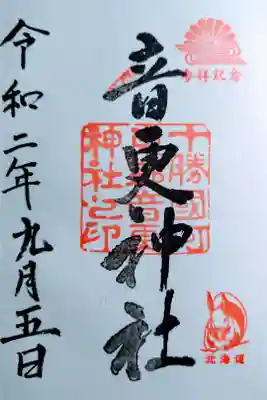 参拝記念
音更神社
十勝國河
東郡音更
神社之印
北海道
令和二年九月五日